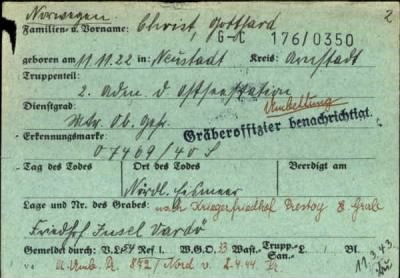 Norwegen 2
Familien- u. Vorname: Christ, Gotthard
G-A 176/0350
geboren am 11.11.22 in: Neustadt Kreis: Arnstadt
Truppenteil:
2. Adm. d. Ostseestation
Umbettung
Dienstgrad:
Mtr. Ob. Gfr.
Gräberoffizier benachrichtigt.
Erkennungsmarke:
07469/40 S
Tag des Todes Ort des Todes Beerdigt am
Nördl. Eismeer
Lage und Nr. des Grabes: nach Kriegerfriedhof
Friedhof Insel Vardö
Gemeldet durch: V.L. 54 Ref I. W.G.O. 33 Wast.- Trupp.- San.- L Bl.
11.3.43
U. Umb. 872/Nord v. 2.4.44